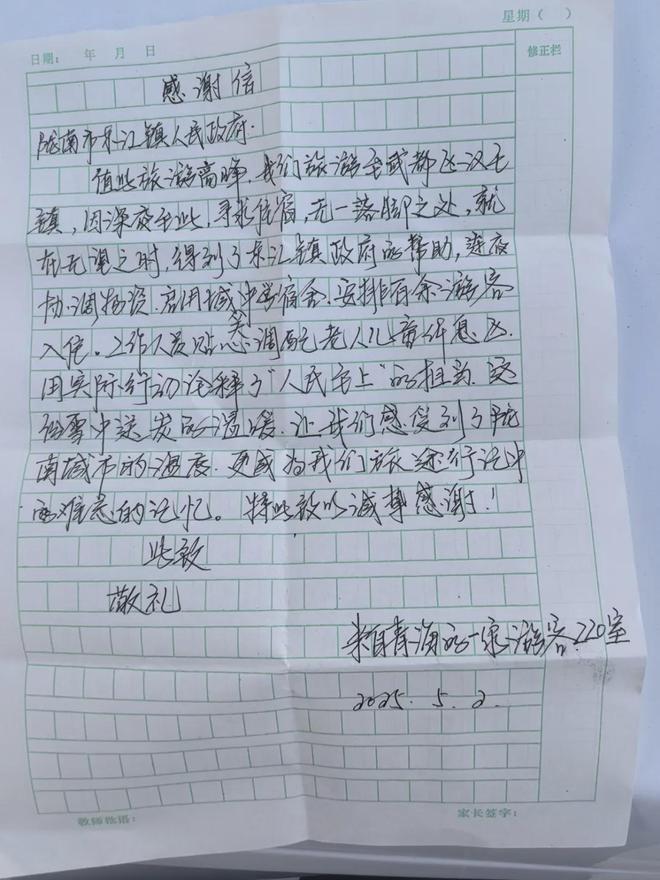 星期（ ）
日期： 年 月 日
修正栏
感谢信
陇南市东江镇人民政府.
值此旅游高峰，我们旅游至武都区汉王
镇，因深夜至此，寻求住宿，无一落脚之处，就
在无望之时，得到了东江镇政府的帮助，连夜
协调物资.启用城中学宿舍.安排百余游客
入住。工作人员贴心关调配老人儿童休息区.
用实际行动诠释了“人民至上”的担当.这
份雪中送炭的温暖.让我们感受到了陇
南城市的温度.更成为我们旅途行记中
难忘的记忆。特此致以诚挚感谢！
此致
敬礼
来自青海的一家游客220室
2025.5.2.
教师批语：
家长签字：